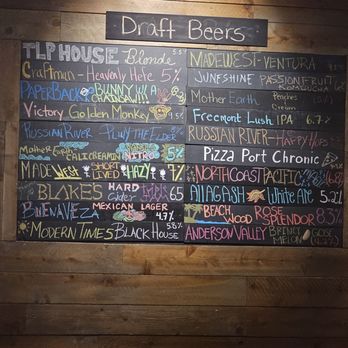 Draft Beers
TLP HOUSE Blonde 5.5
Craftman - Heavenly Hefe 5%
PAPERBACK BUNNY W/A CHAINSAW
Victory Golden Monkey
RUSSIAN RIVER - PLINY THE ELDER
Mother Earth CALI CREAMIN NITRO 5%
MADE WEST SHORT LIVED HAZY 7%
BLAKE'S HARD Cider 6.5
BUENAVEZA MEXICAN LAGER 4.7%
MODERN TIMES BLACK HOUSE 5.8%
MADEWEST - VENTURA
JUNESHINE PASSIONFRUIT KOMBUCHA
Mother Earth Peaches Cream
Freemont Lush IPA 6.7
RUSSIAN RIVER - HAPPY HOPS
Pizza Port Chronic
NORTH COAST PACIFIC
ALLAGASH White Ale 5.2
BEACH WOOD ROSE SPLENDOR 8.3%
ANDERSON VALLEY MELON GOSE